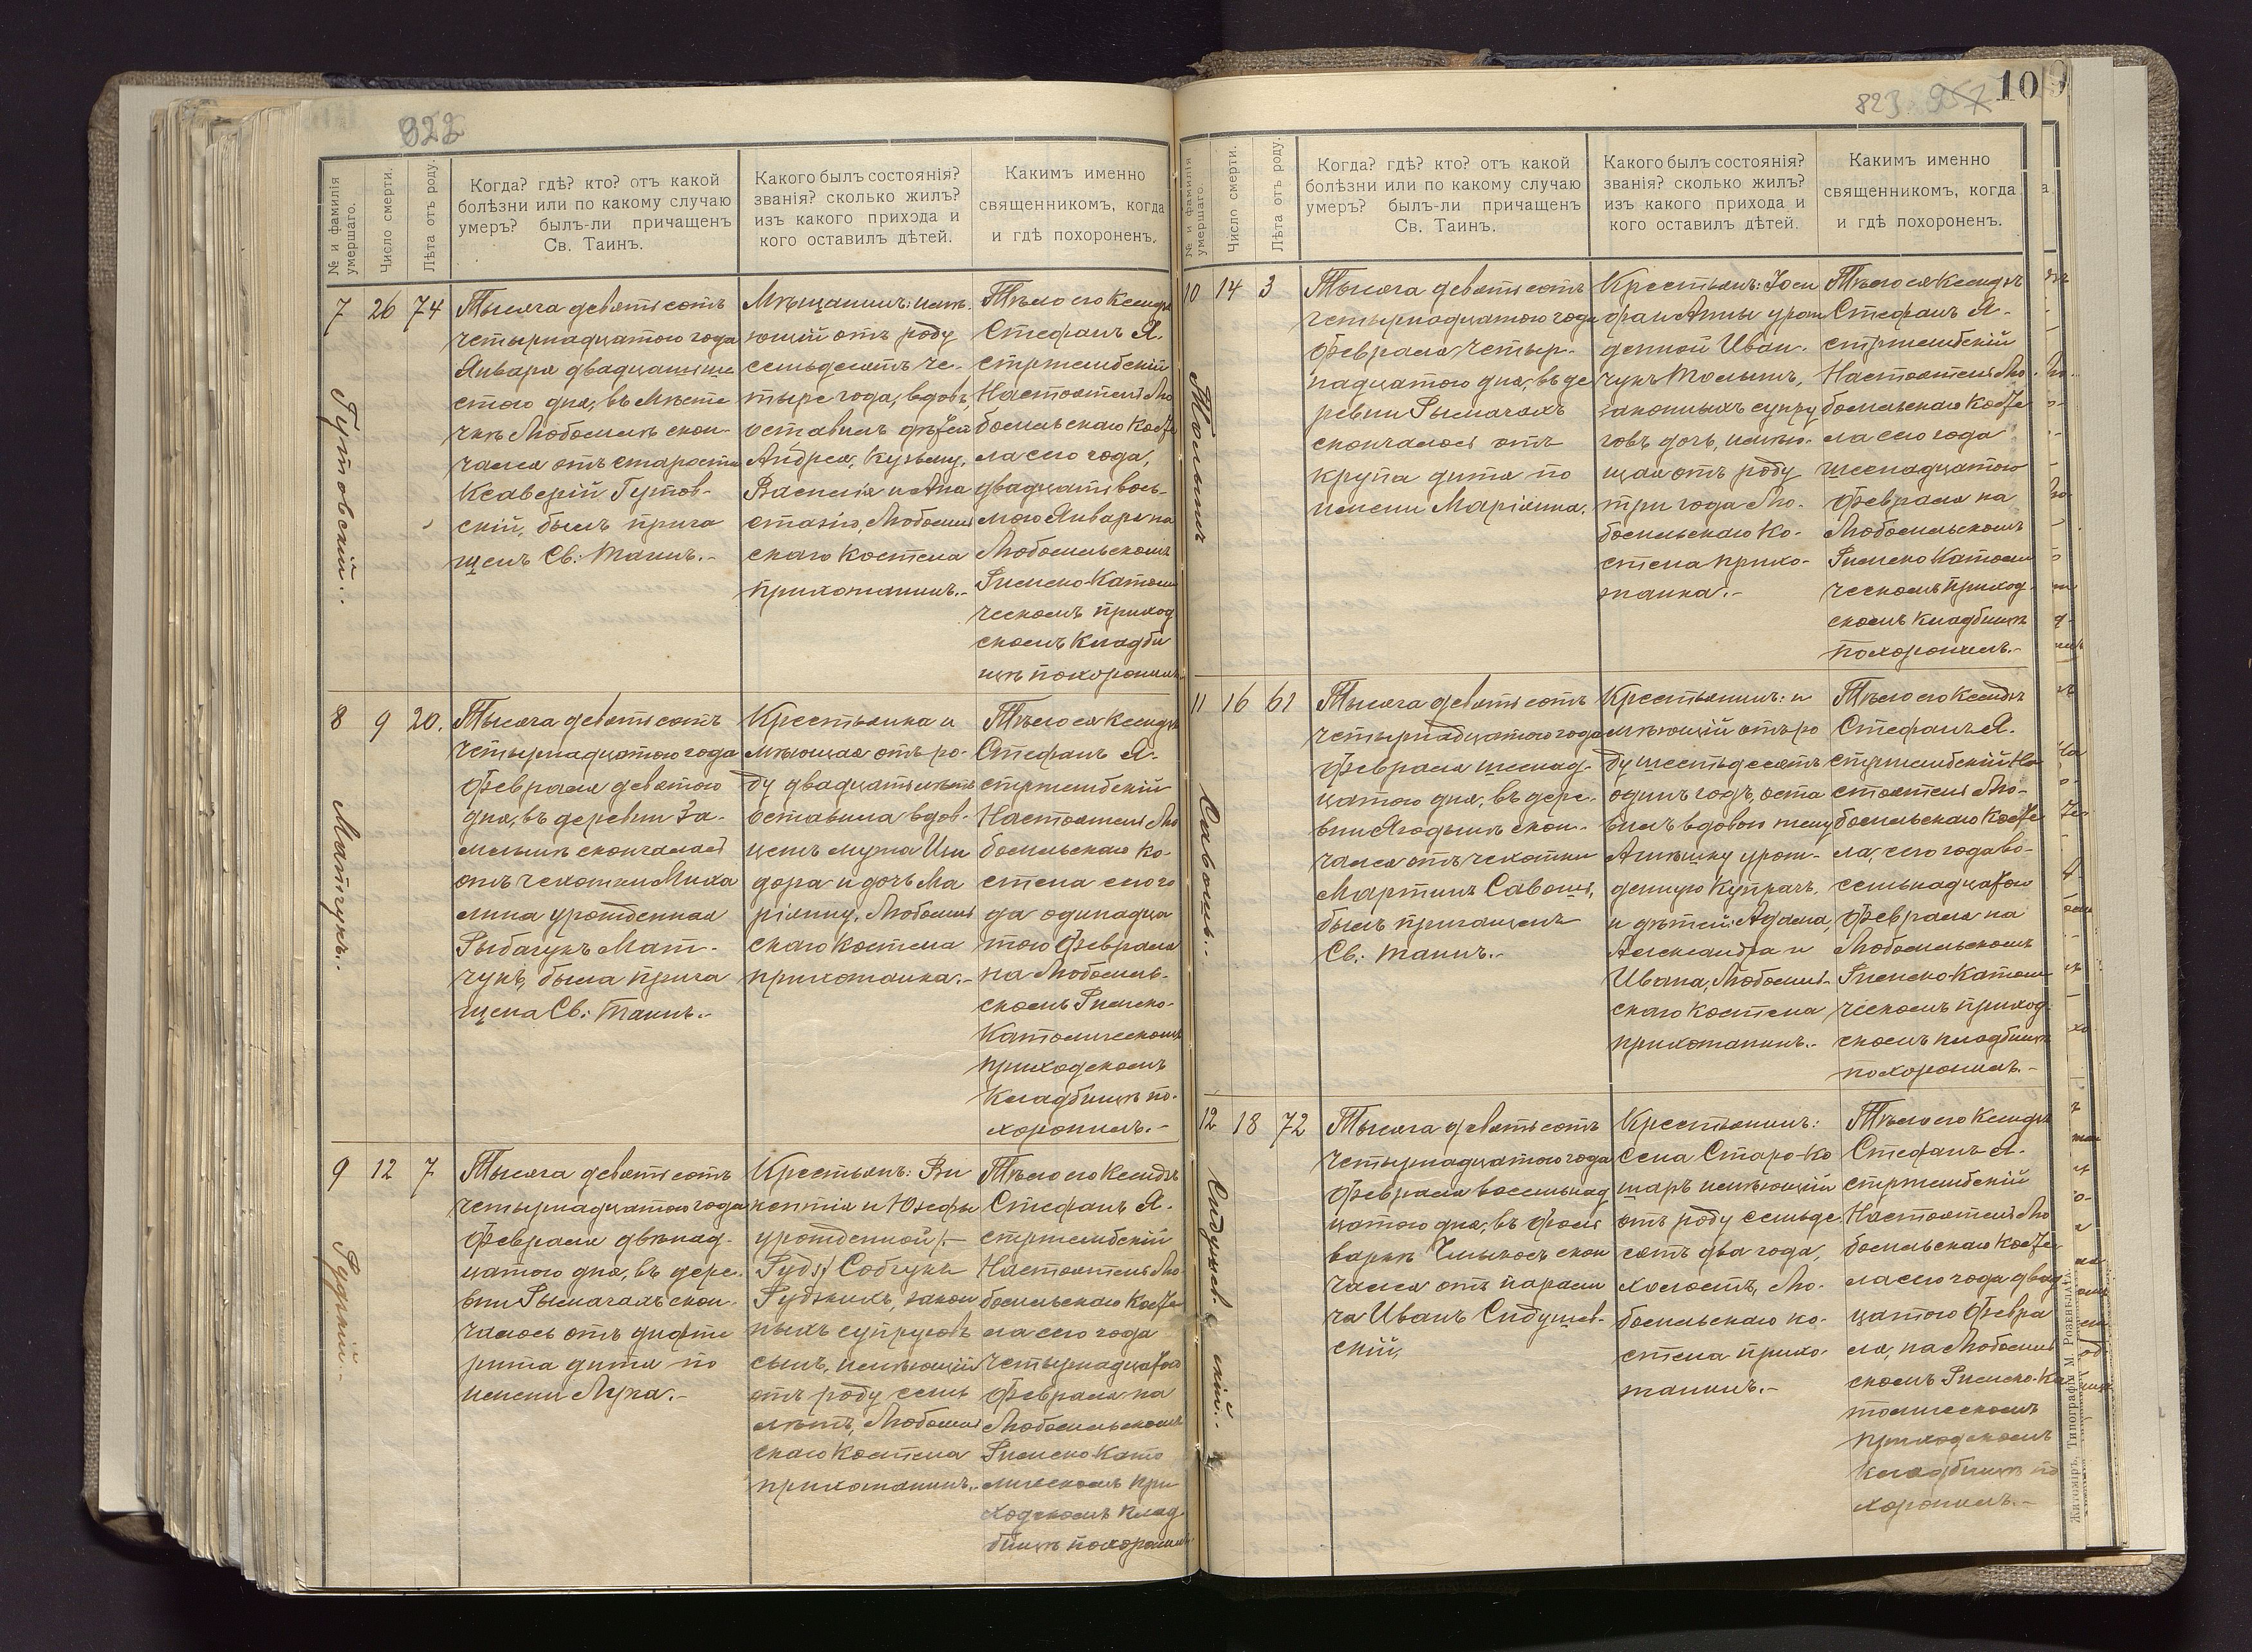 822
№ и фамилія умершаго.
Число смерти.
Лѣта отъ роду.
Когда? гдѣ? кто? отъ какой
болѣзни или по какому случаю
умеръ? былъ-ли причащенъ
Св. Таинъ.
Какого былъ состоянія?
званія? сколько жилъ?
изъ какого прихода и
кого оставилъ дѣтей.
Какимъ именно
священникомъ, когда
и гдѣ похороненъ.
7
Гутовскій.
26
74
Тысяча девятьсотъ
четырнадцатого года
Января двадцатьше
стого дня, въ Мѣсте
чкѣ Любомлѣ скон-
чался отъ старости
Ксаверій Гутов-
скій, былъ прича
щенъ Св: Таинъ.-
Мѣщанинъ: имѣ-
ющій отъ роду
семьдесятъ че-
тыре года, вдовъ,
оставилъ дѣтей
Андрея, Кузьму,
Василія и Ана
стазію, Любомль
скаго Костела
прихожанинъ.-
Тѣло его Ксендзъ
Стефанъ Я-
стржембскій
Настоятель Лю
бомльскаго Косте
ла сего года,
двадцать вось-
мого Января на
Любомльскомъ
Римско-Католи
ческомъ приход
скомъ Кладби
щѣ похоронилъ
8
Матчукъ.
9
20.
Тысяча девятьсотъ
четырнадцатого года
Февраля девятого
дня, въ деревни За-
млынѣ скончалась
отъ чехотки Миха
лина урожденная
Рыбачукъ Мат-
чукъ, была прича
щена Св: Таинъ.-
Крестьянка и
мѣющая отъ ро-
ду двадцать лѣтъ
оставила вдов-
цемъ мужа Изи
дора и дочь Ма
ріянну, Любомль
скаго Костела
прихожанка.-
Тѣло ея Ксендзъ
Стефанъ Я-
стржембскій
Настоятель Лю
бомльскаго Ко-
стела сего го
да одинадца
того Февраля
на Любомль-
скомъ Римско-
Католическомъ
приходскомъ
Кладбищѣ по-
хоронилъ.-
9
Рудскій.-
12
7
Тысяча девятьсотъ
четырнадцатого года
Февраля двѣнад-
цатого дня, въ дере-
вни Рымачахъ скон-
чалось отъ дифте
рита дитя по
имени Лука.-
Крестьянъ: Ви
кентія и Юзефы
урожденной /-
Собчукъ
законн
ныхъ супруговъ
сынъ, имѣющій
отъ роду семь
лѣтъ, Любомль
скаго Костела
прихожанинъ.-
Тѣло его Ксендзъ
Стефанъ Я-
стржембскій
Настоятель Лю-
бомльскаго Косте
ла сего года
четырнадцатого
Февраля на
Любомльскомъ
Римско Като
лическомъ при
ходскомъ Клад
бищѣ похоронилъ
823 957 10
№ и фамилія умершаго.
Число смерти.
Лѣта отъ роду.
Когда? гдѣ? кто? отъ какой
болѣзни или по какому случаю
умеръ? былъ-ли причащенъ
Св. Таинъ.
Какого былъ состоянія?
званія? сколько жилъ?
изъ какого прихода и
кого оставилъ дѣтей.
Какимъ именно
священникомъ, когда
и гдѣ похороненъ.
10
14
3
Тысяча девятьсотъ
четырнадцатого года
Февраля четыр-
надцатого дня, въ де
ревни Рымачахъ
скончалось отъ
крупа дитя по
имени Маріянна.
Крестьянъ: Юзе
фа и Анны урож
денной Иван-
чукъ
законныхъ супру
говъ дочь, имѣю-
щая отъ роду
три года Лю-
бомльскаго Ко-
стела прихо-
жанка.-
Тѣло ея Ксендзъ
Стефанъ Я-
стржембскій
Настоятель Лю-
бомльскаго Косте
ла сего года
шеснадцатого
Февраля на
Любомльскомъ
Римско-Католи
ческомъ приход-
скомъ Кладбищѣ
похоронилъ.-
11
Савошъ.
16
61
Тысяча девятьсотъ
четырнадцатого года
Февраля шеснад-
цатого дня, въ дере-
вни Ягодынѣ скон-
чался отъ чехотки
Мартинъ Савошъ,
былъ причащенъ
Св: Таинъ.-
Крестьянинъ: и
мѣющій отъ ро
ду шестьдесятъ
одинъ годъ, оста
вилъ вдовою жену
урож-
денную
и дѣтей: Адама,
Александра и
Ивана, Любомль-
скаго Костела
прихожанинъ.-
Тѣло его Ксендзъ
Стефанъ Я-
стржембскій На-
стоятель Лю-
бомльскаго Косте
ла, сего года во-
семьнадцатого
Февраля на
Любомльскомъ
Римско-Католи
ческомъ приход-
скомъ кладбищѣ
похоронилъ.-
12
18
72
Тысяча девятьсотъ
четырнадцатого года
Февраля восемьнад
цатого дня, въ Фоль
варкѣ скон
чался отъ парали
ча Иванъ Сидушев-
скій,
Крестьянинъ:
Села Старо-Ко
шаръ имѣющій
отъ роду семьде
сятъ два года,
холостъ, Лю-
бомльскаго ко-
стела прихо-
жанинъ.-
Тѣло его Ксендзъ
Стефанъ Я-
стржембскій
Настоятель Лю
бомльскаго Косте
ла сего года двад
цатого Февра
ля, на Любомль
скомъ Римско-Ка
толическомъ
приходскомъ
кладбищѣ по
хоронилъ.-
Житоміръ, Типографія М. Розенблата.